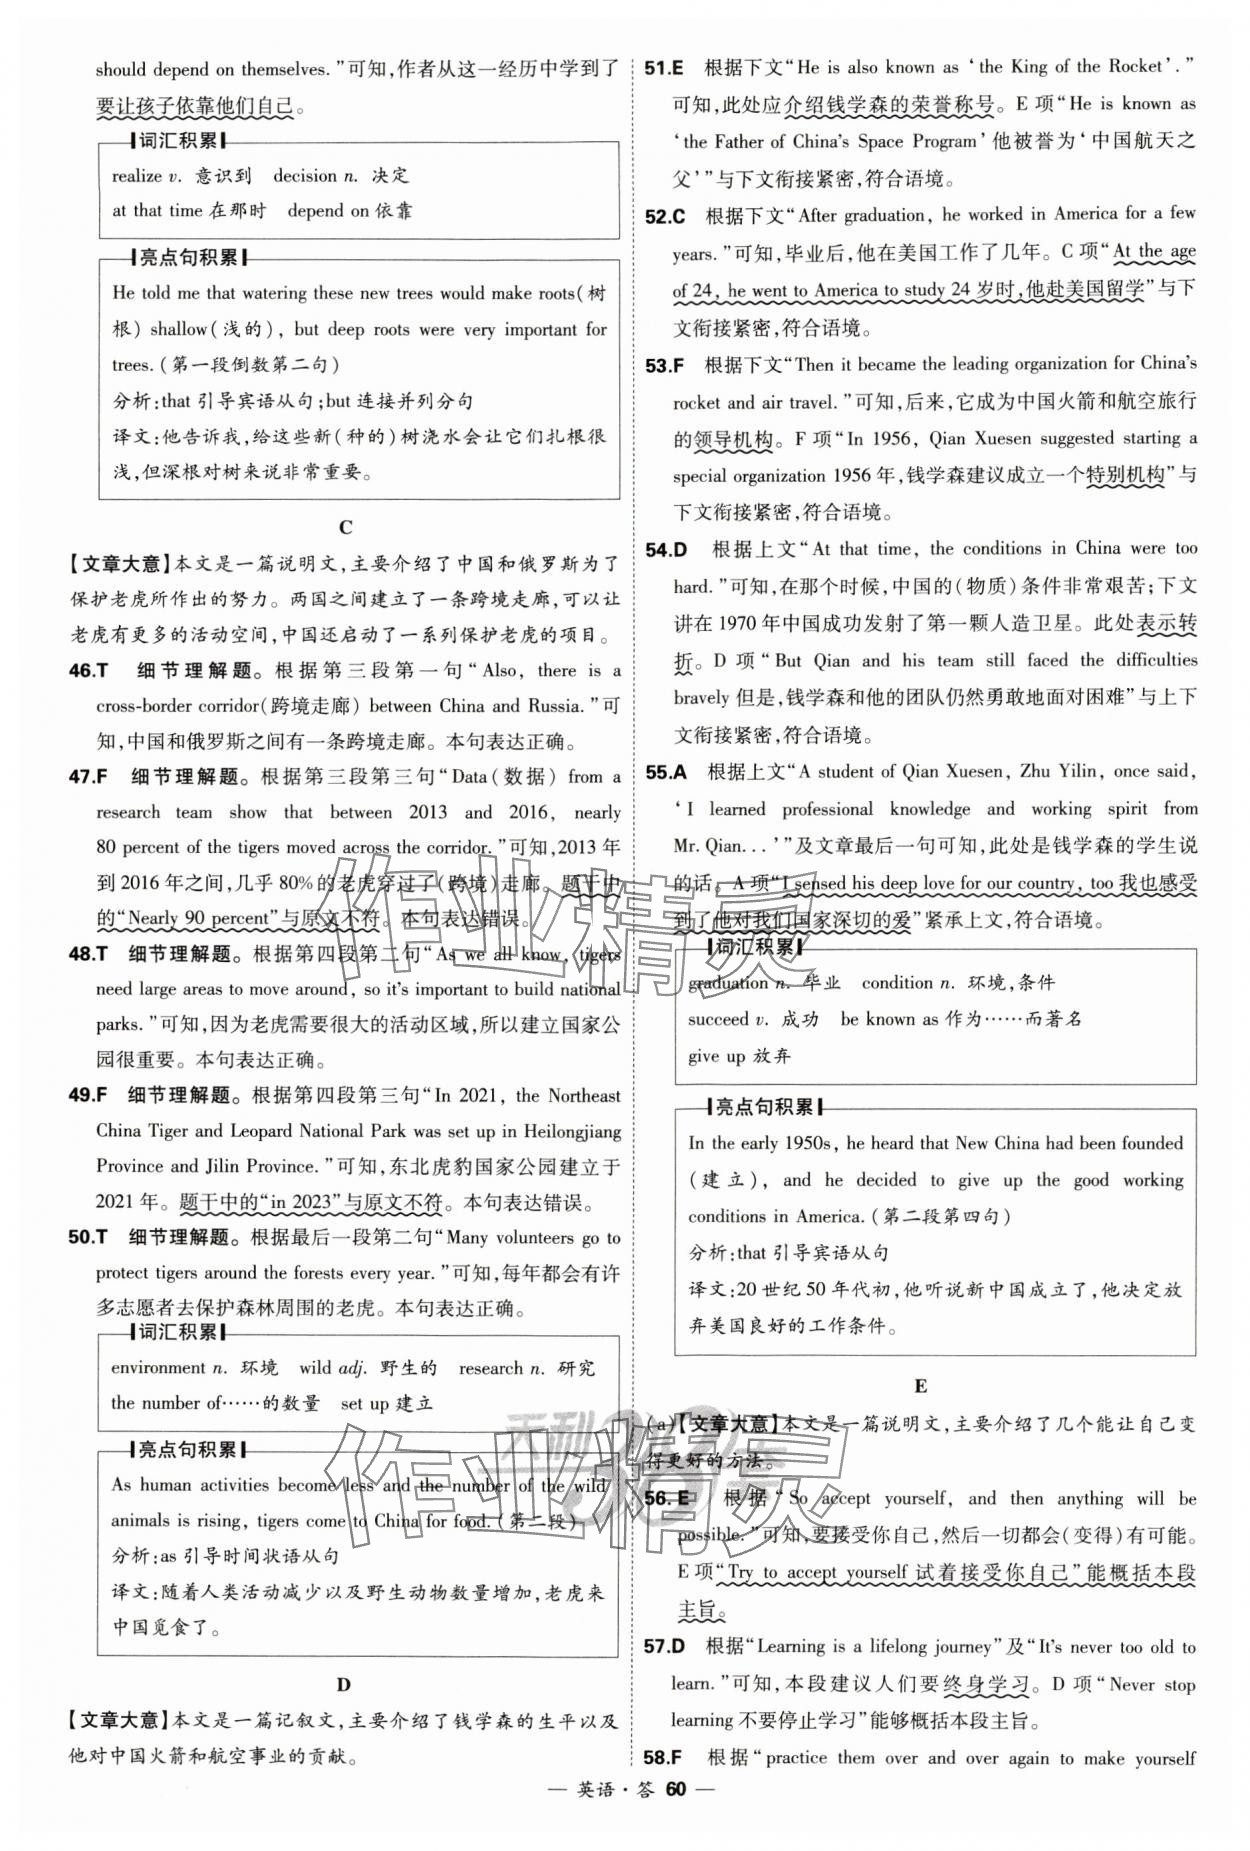 should depend on themselves. ”可知,作者从这一经历中学到了
要让孩子依靠他们自己。
词汇积累
realize v. 意识到 decision n. 决定
at that time 在那时 depend on 依靠
亮点句积累
He told me that watering these new trees would make roots(树
根) shallow(浅的), but deep roots were very important for
trees. (第一段倒数第二句)
分析:that 引导宾语从句;but 连接并列分句
译文:他告诉我,给这些新(种的)树浇水会让它们扎根很
浅,但深根对树来说非常重要。
C
【文章大意】本文是一篇说明文,主要介绍了中国和俄罗斯为了
保护老虎所作出的努力。两国之间建立了一条跨境走廊,可以让
老虎有更多的活动空间,中国还启动了一系列保护老虎的项目。
46.T 细节理解题。根据第三段第一句“Also, there is a
cross-border corridor(跨境走廊) between China and Russia. ”可
知,中国和俄罗斯之间有一条跨境走廊。本句表达正确。
47.F 细节理解题。根据第三段第三句“Data(数据) from a
research team show that between 2013 and 2016, nearly
80 percent of the tigers moved across the corridor. ”可知,2013 年
到 2016 年之间,几乎 80%的老虎穿过了(跨境)走廊。题干中
的“Nearly 90 percent”与原文不符。本句表达错误。
48.T 细节理解题。根据第四段第二句“As we all know, tigers
need large areas to move around, so it's important to build national
parks. ”可知,因为老虎需要很大的活动区域,所以建立国家公
园很重要。本句表达正确。
49.F 细节理解题。根据第四段第三句“In 2021, the Northeast
China Tiger and Leopard National Park was set up in Heilongjiang
Province and Jilin Province. ”可知,东北虎豹国家公园建立于
2021 年。题干中的“in 2023”与原文不符。本句表达错误。
50.T 细节理解题。根据最后一段第二句“Many volunteers go to
protect tigers around the forests every year. ”可知,每年都会有许
多志愿者去保护森林周围的老虎。本句表达正确。
词汇积累
environment n. 环境 wild adj. 野生的 research n. 研究
the number of……的数量 set up 建立
亮点句积累
As human activities become less and the number of the wild
animals is rising, tigers come to China for food. (第二段)
分析:as 引导时间状语从句
译文:随着人类活动减少以及野生动物数量增加,老虎来
中国觅食了。
D
【文章大意】本文是一篇记叙文,主要介绍了钱学森的生平以及
他对中国火箭和航空事业的贡献。
51.E 根据下文“He is also known as ‘the King of the Rocket’. ”
可知,此处应介绍钱学森的荣誉称号。E 项“He is known as
‘the Father of China's Space Program’他被誉为‘中国航天之
父’”与下文衔接紧密,符合语境。
52.C 根据下文“After graduation, he worked in America for a few
years. ”可知,毕业后,他在美国工作了几年。C 项“At the age
of 24, he went to America to study 24 岁时,他赴美国留学”与下
文衔接紧密,符合语境。
53.F 根据下文“Then it became the leading organization for China's
rocket and air travel. ”可知,后来,它成为中国火箭和航空旅行
的领导机构。F 项“In 1956, Qian Xuesen suggested starting a
special organization 1956 年,钱学森建议成立一个特别机构”与
下文衔接紧密,符合语境。
54.D 根据上文“At that time, the conditions in China were too
hard. ”可知,在那个时候,中国的(物质)条件非常艰苦;下文
讲在 1970 年中国成功发射了第一颗人造卫星。此处表示转
折。D 项“But Qian and his team still faced the difficulties
bravely 但是,钱学森和他的团队仍然勇敢地面对困难”与上下
文衔接紧密,符合语境。
55.A 根据上文“A student of Qian Xuesen, Zhu Yilin, once said,
‘I learned professional knowledge and working spirit from
Mr. Qian. . . ’”及文章最后一句可知,此处是钱学森的学生说
的话。A 项“I sensed his deep love for our country, too 我也感受
到了他对我们国家深切的爱”紧承上文,符合语境。
词汇积累
graduation n. 毕业 condition n. 环境,条件
succeed v. 成功 be known as 作为……而著名
give up 放弃
亮点句积累
In the early 1950s, he heard that New China had been founded
(建立), and he decided to give up the good working
conditions in America. (第二段第四句)
分析:that 引导宾语从句
译文:20 世纪 50 年代初,他听说新中国成立了,他决定放
弃美国良好的工作条件。
E
(a)【文章大意】本文是一篇说明文,主要介绍了几个能让自己变
得更好的方法。
56.E 根据“So accept yourself, and then anything will be
possible. ”可知,要接受你自己,然后一切都会(变得)有可能。
E 项“Try to accept yourself 试着接受你自己”能概括本段
主旨。
57.D 根据“Learning is a lifelong journey”及“It's never too old to
learn. ”可知,本段建议人们要终身学习。D 项“Never stop
learning 不要停止学习”能够概括本段主旨。
58.F 根据“practice them over and over again to make yourself
— 英语·答 60 —
作业精灵
作业精灵
天利38套